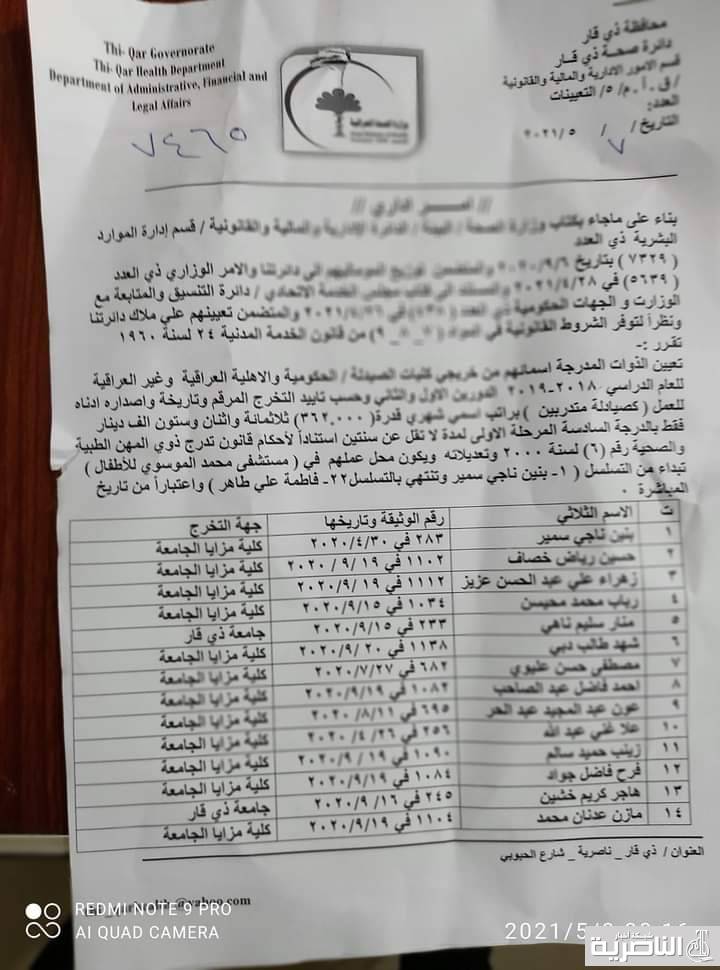 Thi- Qar Governorate
Thi- Qar Health Department
Department of Administrative, Financial and
Legal Affairs
٧٤٦٥
محافظة ذي قار
دائرة صحة ذي قار
قسم الامور الادارية والمالية والقانونية
/ ق . أ . م / ٥ / التعيينات
العدد:
التاريخ / ٧ / ٢٠٢١/٥
// امر اداري //
بناء على ماجاء بكتاب وزارة الصحة / البيئة / الدائرة الإدارية والمالية والقانونية / قسم إدارة الموارد
البشرية ذي العدد
(٧٣٢٩) بتاريخ ٢٠٢٠/٩/٦ والمتضمن توزيع إلى دائرتنا والامر الوزاري ذي العدد
(٥٦٣٩) في ٢٠٢١/٤/٢٨ والمستند الى كتاب مجلس الخدمة الاتحادي / دائرة التنسيق والمتابعة مع
الوزارت و الجهات الحكومية ذي العدد والمتضمن تعيينهم على ملاك دائرتنا
ونظراً لتوفر الشروط القانونية في المواد من قانون الخدمة المدنية ٢٤ لسنة ١٩٦٠
تقرر :-
تعيين الذوات المدرجة اسمائهم من خريجي كليات الصيدلة / الحكومية والاهلية العراقية وغير العراقية
للعام الدراسي ٢٠١٨-٢٠١٩ الدورين الاول والثاني وحسب تاييد التخرج المرقم وتاريخة واصداره ادناه
للعمل (كصيادلة متدربين ) براتب اسمي شهري قدرة (٣٦٢,٠٠٠) ثلاثمائة واثنان وستون الف دينار
فقط بالدرجة السادسة المرحلة الاولى لمدة لا تقل عن سنتين استناداً لأحكام قانون تدرج ذوي المهن الطبية
والصحية رقم (٦) لسنة ٢٠٠٠ وتعديلاته ويكون محل عملهم في ( مستشفى محمد الموسوي للأطفال )
تبداء من التسلسل ( ١- بنين ناجي سمير وتنتهي بالتسلسل ٢٢- فاطمة علي طاهر ) واعتباراً من تاريخ
المباشرة .
ت الاسم الثلاثي رقم الوثيقة وتاريخها جهة التخرج
١ بنين ناجي سمير ٢٨٣ في ٢٠٢٠/٤/٣٠ كلية مزايا الجامعة
٢ حسين رياض خصاف ١١٠٢ في ١٩ /٩ / ٢٠٢٠ كلية مزايا الجامعة
٣ زهراء علي عبد الحسن عزيز ١١١٢ في ١٩ /٩ /٢٠٢٠ كلية مزايا الجامعة
٤ رباب محمد محيسن ١٠٣٤ في ٢٠٢٠/٩/١٥ كلية مزايا الجامعة
٥ منار سليم ناهي ٢٣٣ في ٢٠٢٠/٩/١٥ جامعة ذي قار
٦ شهد طالب دبي ١١٣٨ في ٢٠ /٢٠٢٠/٩ كلية مزايا الجامعة
٧ مصطفى حسن عليوي ٦٨٢ في ٢٠٢٠/٧/٢٧ كلية مزايا الجامعة
٨ احمد فاضل عبد الصاحب ١٠٨٢ في ٢٠٢٠/٩/١٩ كلية مزايا الجامعة
٩ عون عبد المجيد عبد الحر ٦٩٥ في ٢٠٢٠ /٨/١١ كلية مزايا الجامعة
١٠ علا غني عبد الله ٢٥٦ في ٢٦ /٤ /٢٠٢٠ كلية مزايا الجامعة
١١ زينب حميد سالم ١٠٩٠ في ١٩ /٩ /٢٠٢٠ كلية مزايا الجامعة
١٢ فرح فاضل جواد ١٠٨٤ في ٢٠٢٠/٩/١٩ كلية مزايا الجامعة
١٣ هاجر كريم خشين ٢٤٥ في ١٦ /٩ /٢٠٢٠ جامعة ذي قار
١٤ مازن عدنان محمد ١١٠٤ في ٢٠٢٠/٩/١٩ كلية مزايا الجامعة
العنوان / ذي قار _ ناصرية _ شارع الحبوبي
@yahoo.com
REDMI NOTE 9 PRO
AI QUAD CAMERA
2021/5/
شبكة اخبار
الناصرية